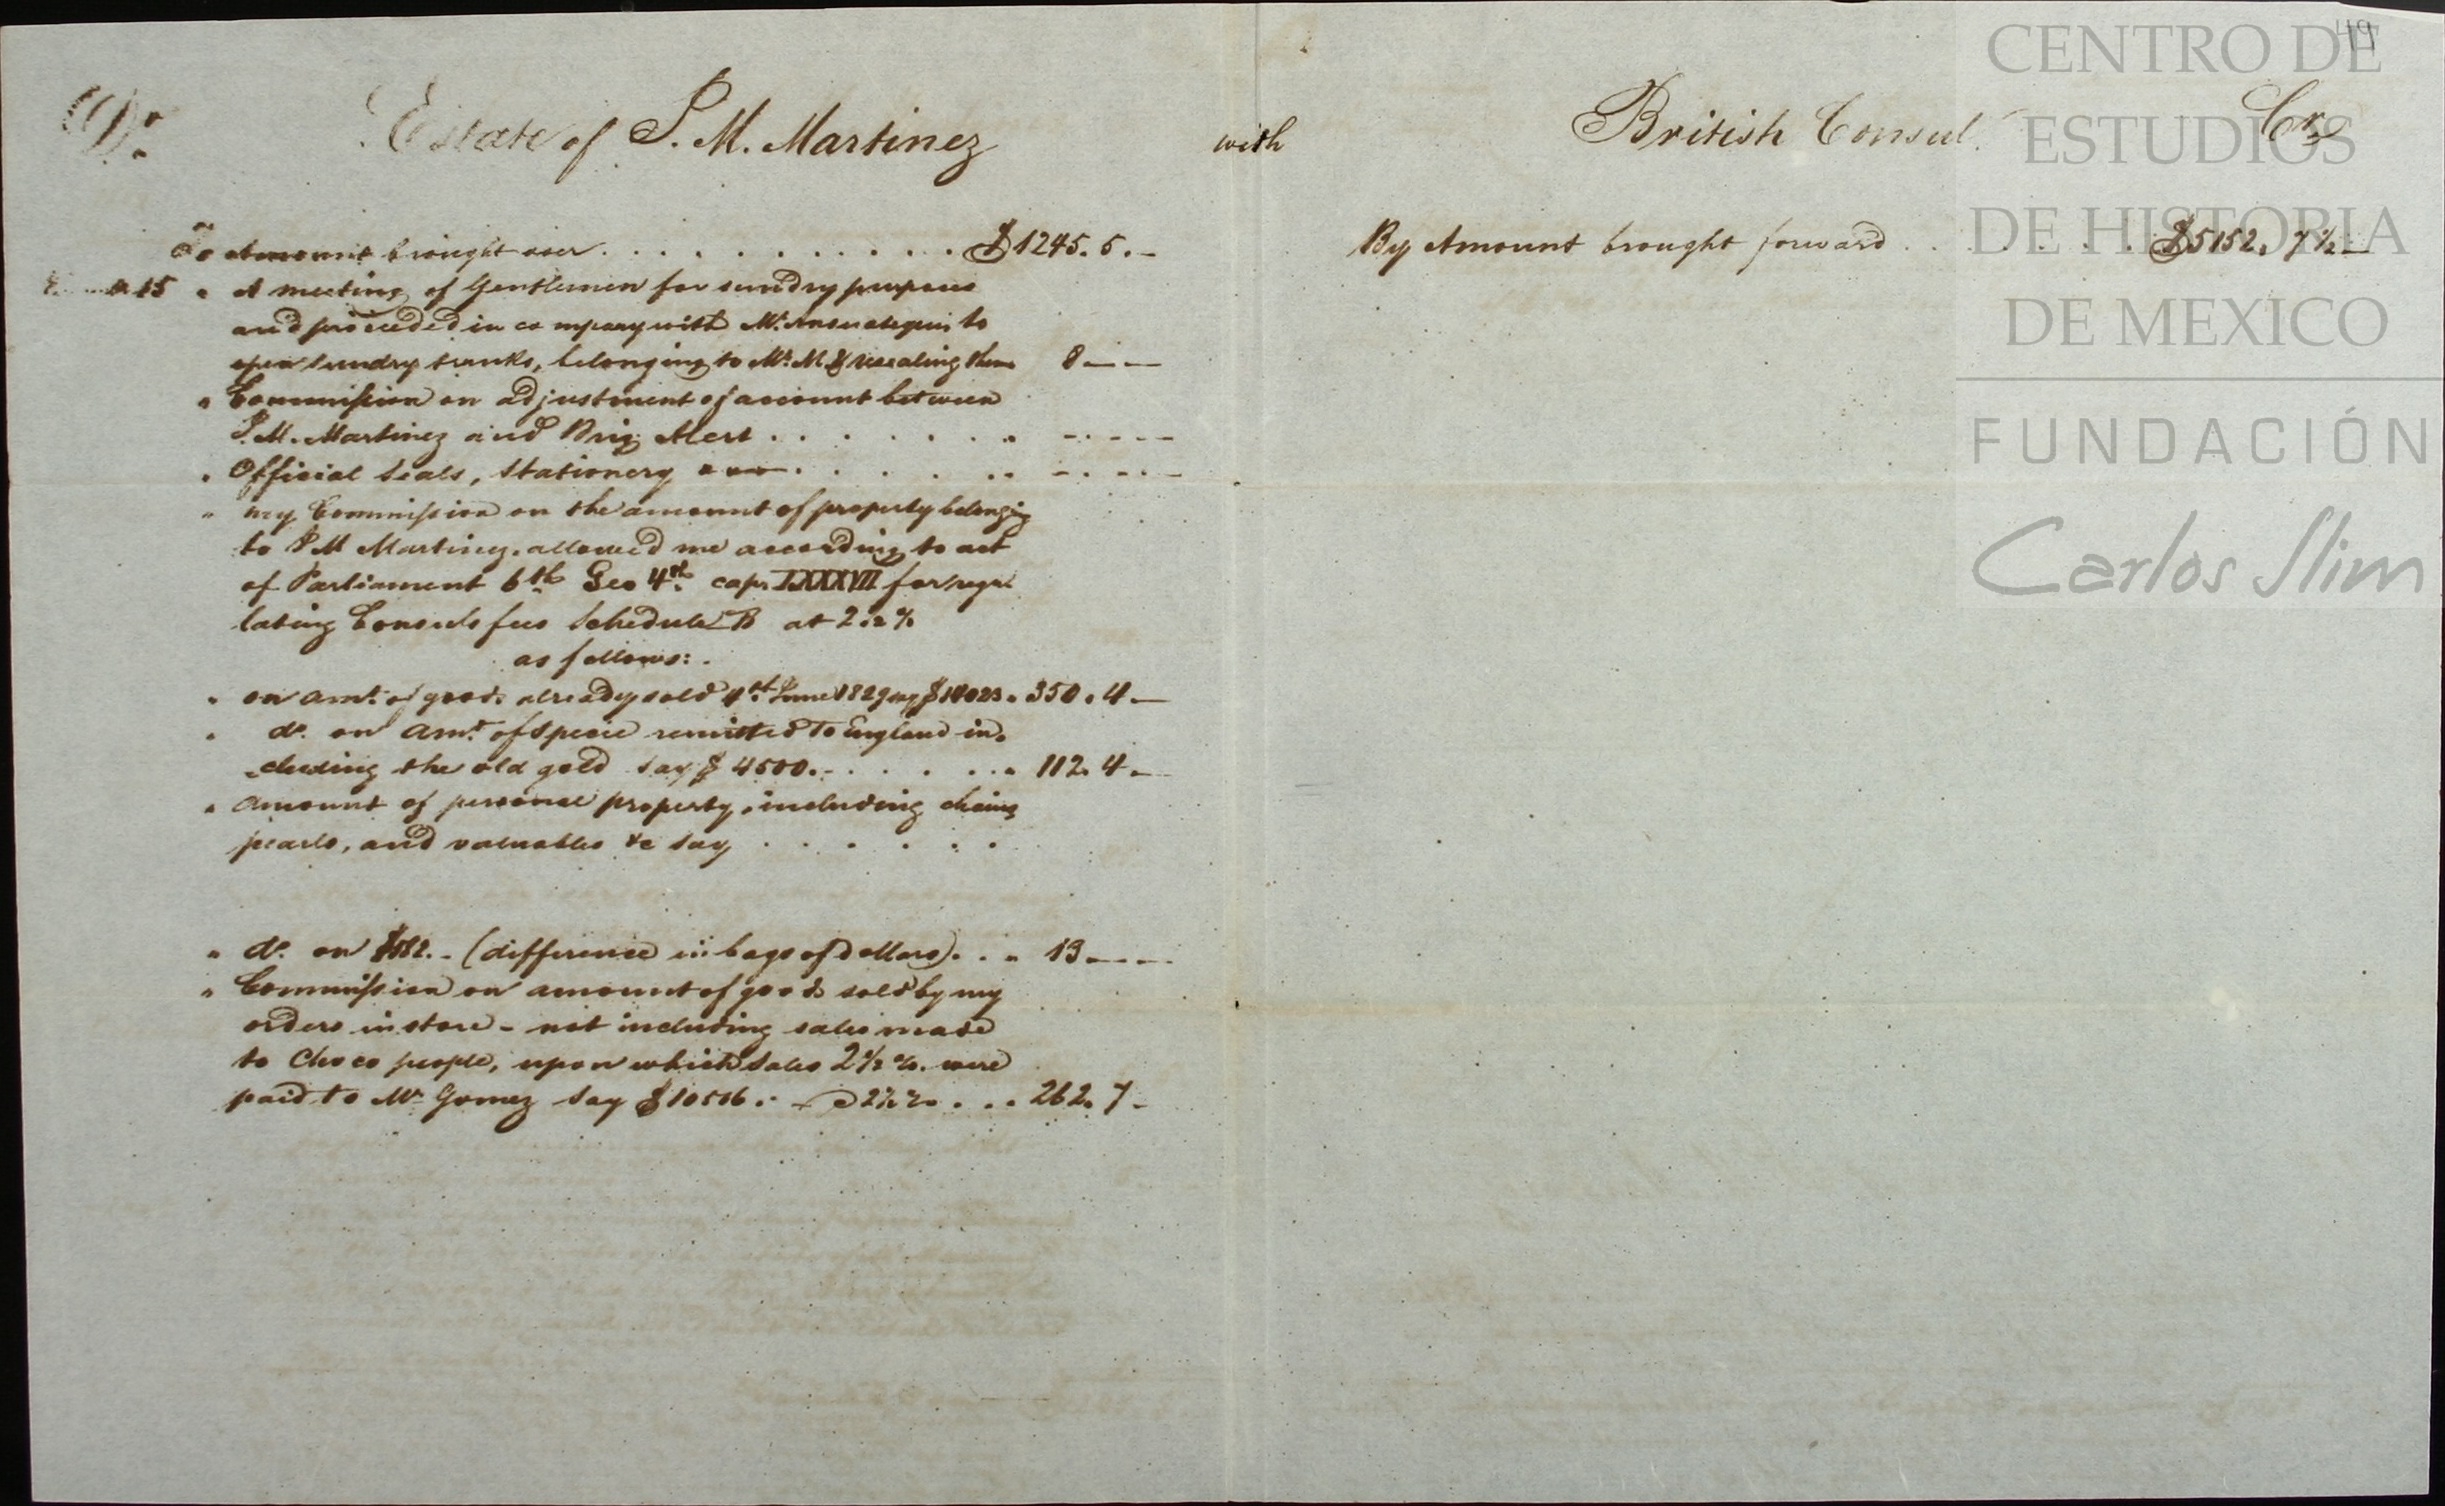 49
Dr. Estate of P. M. Martinez with British Consul. Cr.
To Amount brought over . . . . . . . . . . . $1245. 5. -
15 " A meeting of Gentlemen for sundry purposes
and proceeded in company with Mr. to
open sundry trunks, belonging to Mr. M. & resealing them 8 - -
" Commission on adjustment of account between
P. M. Martinez and Brig Alert . . . . . . . . - . - - -
" Official Seals, Stationery . . . . . . - . - . -
" my Commission on the amount of property belonging
to P M Martinez. allowed me according to act
of Parliament 6th Geo 4th. cap. LXXXVII for regu
lating Consuls fees Schedule B at 2 1/2 %
as follows: .
" on amt. of goods already sold 4th June 1829 say $14023. 350. 4 -
" do. on amt. of specie remitted to England in-
-cluding the old gold say $ 4500. - . . . . . " 112. 4 -
" amount of personal property, including chains
pearls, and valuables &c say . . . . . .
" do. on $ (difference in bags of Dollars) . . " 13 - - -
" Commission on amount of goods sold by my
orders in store - not including sales made
to Choco people, upon which sales 2 1/2 %. were
paid to Mr Gomez say $10516. - 2 1/2 % . . . 262. 7 -
By Amount brought forward . . . . . . . $5152. 7 1/2 -
CENTRO DE
ESTUDIOS
DE HISTORIA
DE MEXICO
FUNDACIÓN
Carlos Slim